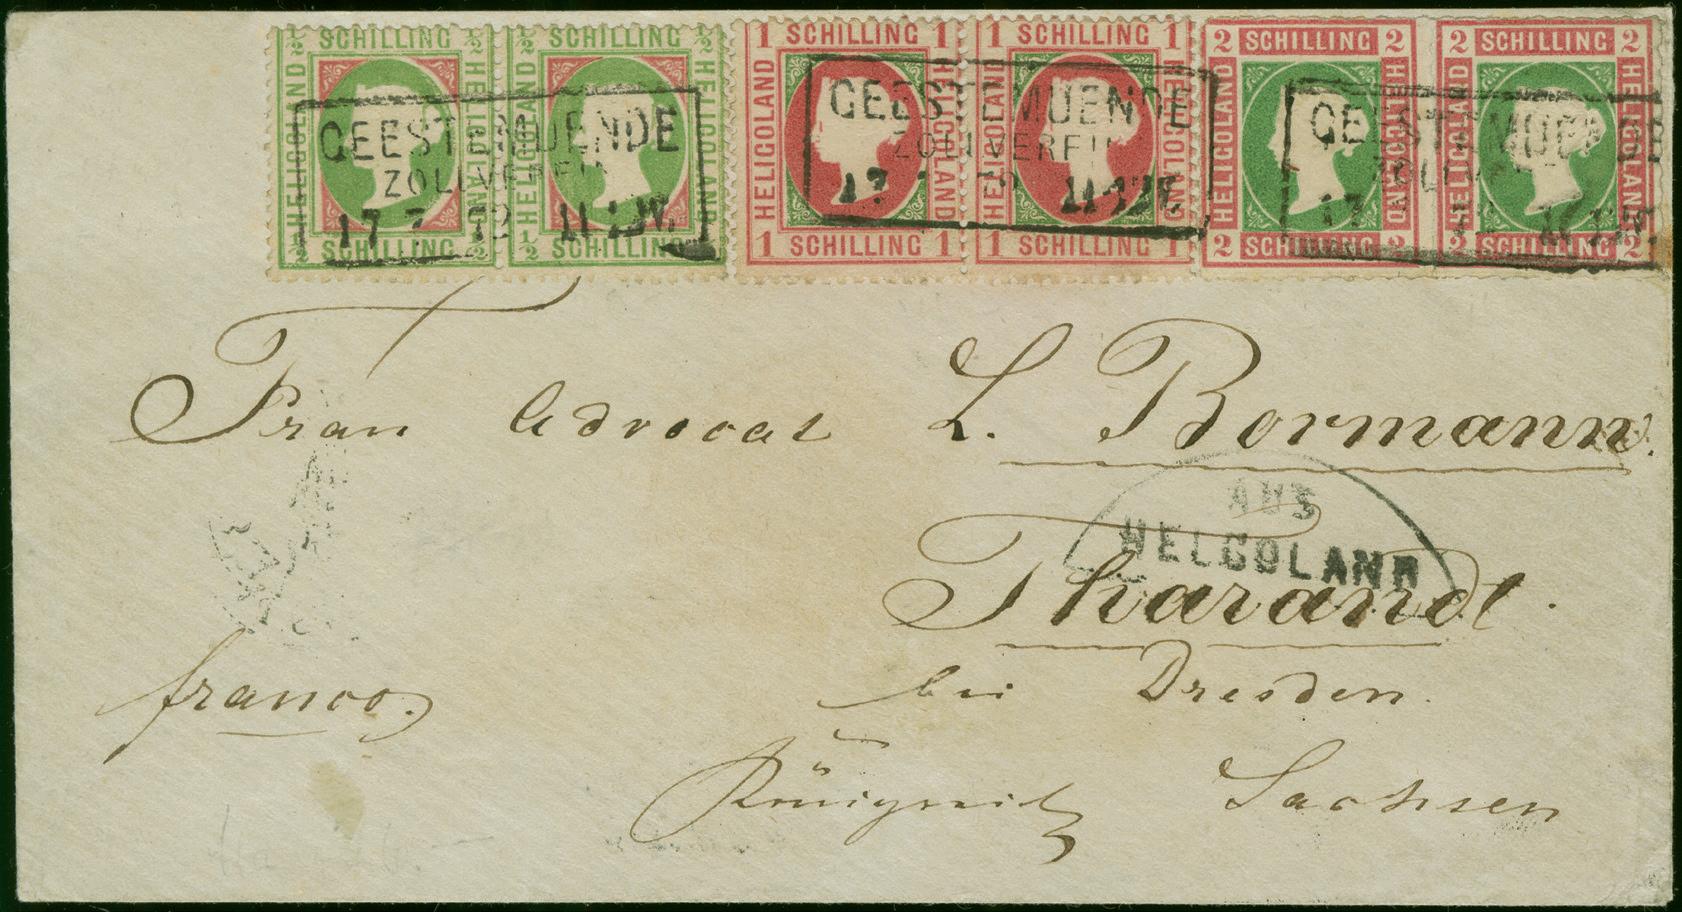 ½ SCHILLING ½ ½ SCHILLING ½ 1 SCHILLING 1 1 SCHILLING 1 2 SCHILLING 2 2 SCHILLING 2
HELIGOLAND HELIGOLAND HELIGOLAND HELIGOLAND HELIGOLAND HELIGOLAND HELIGOLAND HELIGOLAND HELIGOLAND HELIGOLAND HELIGOLAND HELIGOLAND
½ SCHILLING ½ ½ SCHILLING ½ 1 SCHILLING 1 1 SCHILLING 1 2 SCHILLING 2 2 SCHILLING 2
GEESTEMUENDE
ZOLLVEREIN
17 7 72 11-12V.
GEESTEMUENDE
ZOLLVEREIN
17 72 11-12V.
GEESTEMUENDE
ZOLLVEREIN
17
Frau Advocat L. Bormann.
AUS
HELGOLAND
Tharandt.
bei Dresden.
franco.
Königreich Sachsen